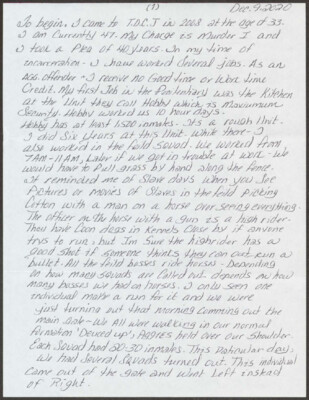 (1)
Dec. 9. 2020
To begin, I came to T.D.C.J in 2008 at the age of 33.
I am currently 47. My charge is Murder I and
I took a Plea of 40 years. In my time of
incarceration - I have worked several jobs. As an
agg. offender - I receive no Good Time or Work Time
Credit. My first Job in the Penitentiary was the Kitchen
at the Unit they call Hobby which is Maximum
Security. Hobby worked us 10 hour days.
Hobby has at least 1520 inmates. Its a rough Unit.
I did Six years at this Unit. While there - I
also worked in the field Squad. We worked from
7AM-11AM, Later if we got in trouble at work - we
would have to Pull grass by hand along the fence.
It reminded me of Slave days when you see
Pictures or movies of Slaves in the field Picking
Cotton with a man on a horse overseeing everything.
The officer on the horse with a gun is a high rider.
They have Coon dogs in Kennels Close by if anyone
trys to run, but Im Sure the highrider has a
good shot if someone thinks they can out run a
bullet. All the field bosses ride horses - Depending
on how many squads are Called out depends on how
many bosses we had on horses. I only seen one
individual make a run for it and we were
just turning out that morning comming out the
main gate - We all were walking in our normal
formation 'Deuced up', AGGIES held over our shoulder.
Each Squad had 20-30 inmates. This Paticular day,
We had Several Squads turned out. This individual
came out of the gate and went Left instead
of Right.